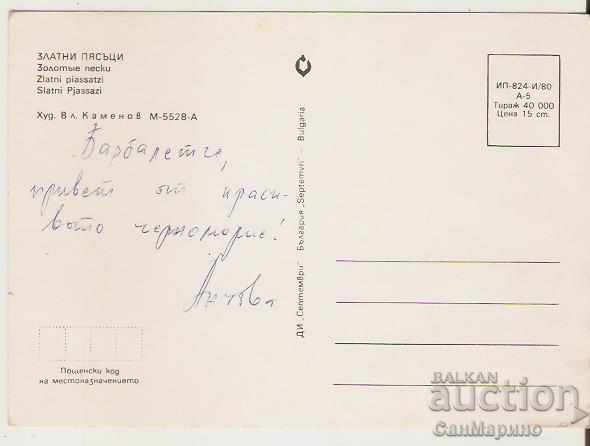 ЗЛАТНИ ПЯСЪЦИ
Золотые пески
Zlatni piassatzi
Slatni Pjassazi
Худ. Вл. Каменов М-5528-А
привет от краси-
вото черноморие!
Пощенски код
на местоназначението
ДИ „Септември" България „Septemvri" - Bulgaria
ИП-824-И/80
А-5
Тираж 40 000
Цена 15 ст.
BALKAN
auction
СанМарино